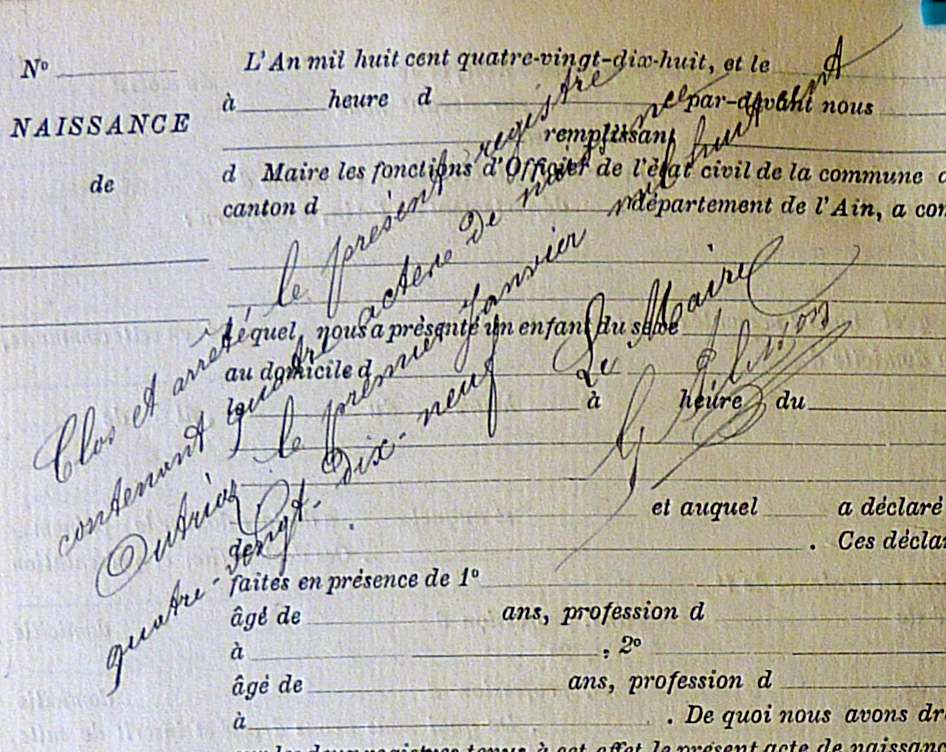 Nº
NAISSANCE
de
L'An mil huit cent quatre-vingt-dix-huit, et le
à heure d par-devant nous
remplissant
d Maire les fonctions d'Officier de l'état civil de la commune d
canton d département de l'Ain, a com
lequel nous a présenté un enfant du sexe
au domicile d
le à heure du
et auquel a déclaré
de
. Ces déclar
faites en présence de 1º
âgé de ans, profession d
à , 2º
âgé de ans, profession d
à . De quoi nous avons dre
sur les deux registres tenus à cet effet le présent acte de naissan
Clos et arrêté, le présent registre
contenant quatre actere de naissance
Outriaz le premier Janvier mil huit cent
quatre-vingt-dix-neuf
Le Maire